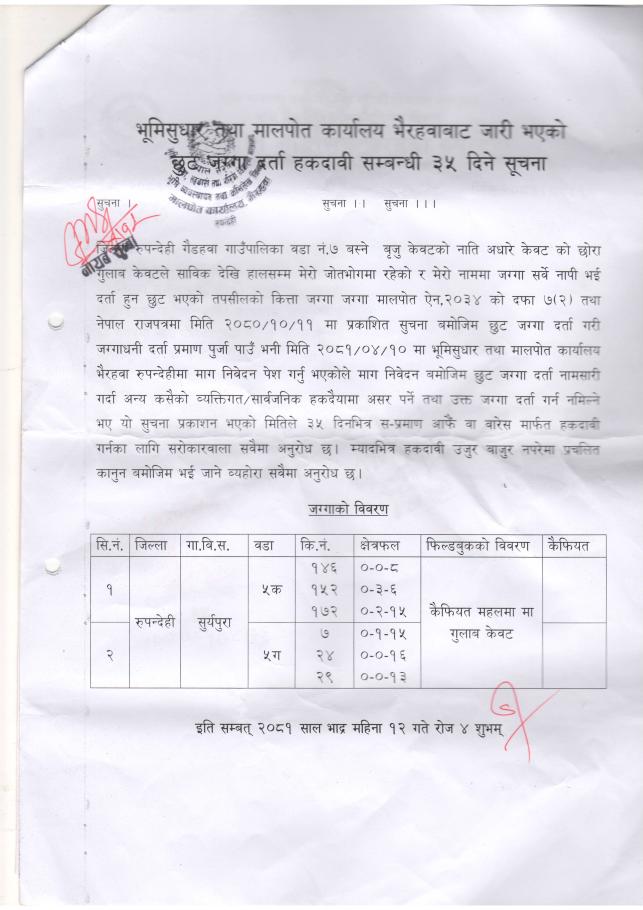 भूमिसुधार तथा मालपोत कार्यालय भैरहवाबाट जारी भएको
छुट जग्गा दर्ता हकदावी सम्बन्धी ३५ दिने सूचना
सुचना । सुचना ।। सुचना ।।।
जिल्ला रुपन्देही गैडहवा गाउँपालिका वडा नं.७ बस्ने बृजु केवटको नाति अधारे केवट को छोरा
गुलाब केवटले साविक देखि हालसम्म मेरो जोतभोगमा रहेको र मेरो नाममा जग्गा सर्वे नापी भई
दर्ता हुन छुट भएको तपसीलको कित्ता जग्गा जग्गा मालपोत ऐन,२०३४ को दफा ७(२) तथा
नेपाल राजपत्रमा मिति २०८०/१०/११ मा प्रकाशित सुचना बमोजिम छुट जग्गा दर्ता गरी
जग्गाधनी दर्ता प्रमाण पुर्जा पाउँ भनी मिति २०८१/०४/१० मा भूमिसुधार तथा मालपोत कार्यालय
भैरहवा रुपन्देहीमा माग निवेदन पेश गर्नु भएकोले माग निवेदन बमोजिम छुट जग्गा दर्ता नामसारी
गर्दा अन्य कसैको व्यक्तिगत/सार्वजनिक हकदैयामा असर पर्ने तथा उक्त जग्गा दर्ता गर्न नमिल्ने
भए यो सुचना प्रकाशन भएको मितिले ३५ दिनभित्र स-प्रमाण आफैं वा वारेस मार्फत हकदावी
गर्नका लागि सरोकारवाला सवैमा अनुरोध छ। म्यादभित्र हकदावी उजुर वाजुर नपरेमा प्रचलित
कानुन बमोजिम भई जाने व्यहोरा सवैमा अनुरोध छ।
जग्गाको विवरण
सि.नं. जिल्ला गा.वि.स. वडा कि.नं. क्षेत्रफल फिल्डबुकको विवरण कैफियत
१ रुपन्देही सुर्यपुरा ५क १४६ ०-०-८ कैफियत महलमा मा गुलाब केवट
१५२ ०-३-६
१७२ ०-२-१५
२ ५ग ७ ०-१-१५
२४ ०-०-१६
२९ ०-०-१३
इति सम्बत् २०८१ साल भाद्र महिना १२ गते रोज ४ शुभम्